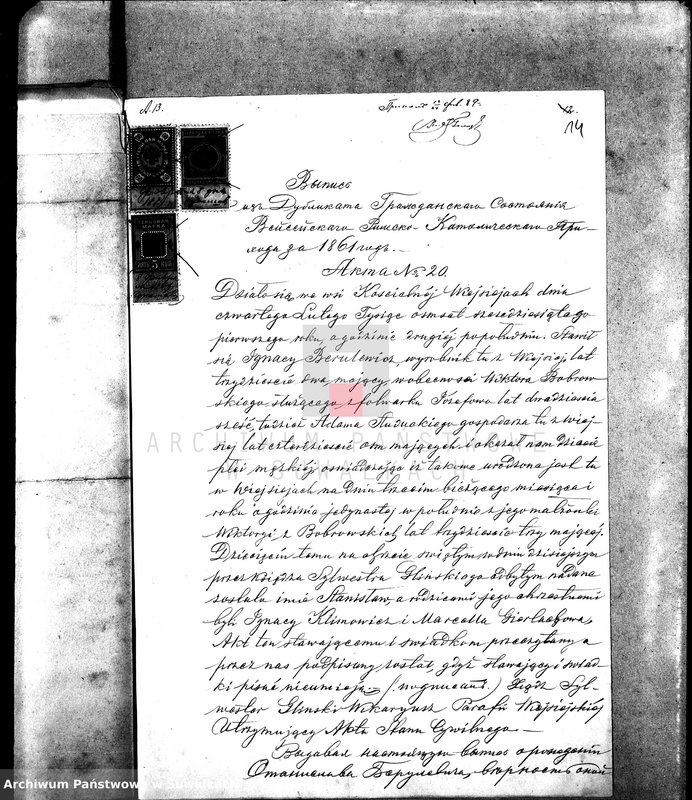 А.В.
14
Выпись
изъ Дубликата Гражданскаго Состоянія
Вейсейскаго Римско-Католическаго При-
хода за 1861 годъ.
Акта № 20.
Działo się we wsi Kościelnej Wejsiejach dnia
czwartego Lutego Tysiąc ośmset sześdziesiątego
pierwszego roku, o godzinie drugiej popołudniu. Stawił
się Ignacy Berulewicz, wyrobnik tu z Wejsiej, lat
trzydzieście dwa mający, w obecności Wiktora Bobrow-
skiego służącego z folwarku Józefowo lat dwadzieścia
sześć, tudzież Adama gospodarza tu z Wiej-
siej lat czterdzieście ośm mających i okazał nam dziecie
płci męzkiej oświadczając iż takowe urodzone jest tu
w Wiejsiejach na dniu trzecim bieżącego miesiąca i
roku o godzinie jedynastej w południe z jego małżonki
Wiktoryi z Bobrowskich lat trzydzieście trzy mającej.
Dziecięciu temu na chrzcie świętym w dniu dzisiejszym
przez Księdza Sylwestra Glińskiego odbytym nadane
zostało imie Stanisław, a rodzicami jego chrzestnemi
byli Ignacy Klimowicz i Marcella
Akt ten stawającemu i świadkom przeczytany a
przez nas podpisany został, gdyż stawający i świad-
ki pisać nieumieją (подписано.) Xiądz Syl-
wester Gliński Wikaryusz Parafii Wejsiejskiej
Utrzymujący Akta Stanu Cywilnego.
Выдавая настоящую выпись о рожденіи
Станислава Берулевича, вѣрность оной
ARCHIWUM PAŃSTWOWE
W SUWAŁKACH
Archiwum Państwowe w Suwałkach